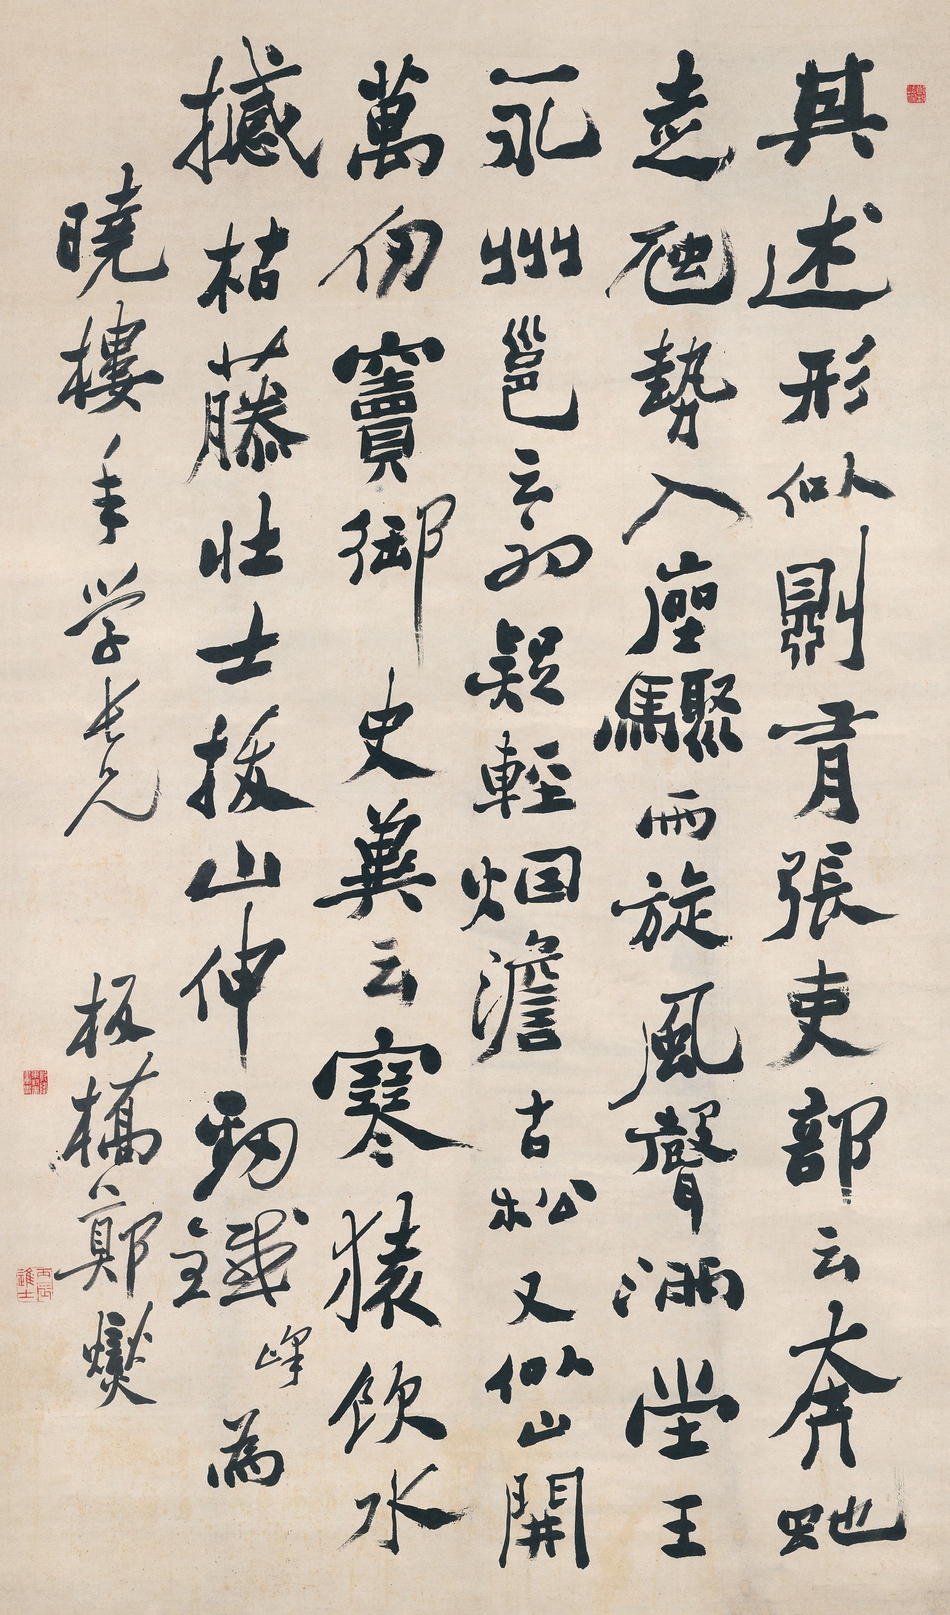 其述形似則有張吏部云奔虵
走虺勢入座驟雨旋風聲滿堂王
永州邕云初疑輕烟澹古松又似山開
萬仞竇御史冀云寒猿飲水
撼枯藤壯士拔山伸勁鐵
為
曉樓年学長兄 板橋鄭燮
丙辰進士